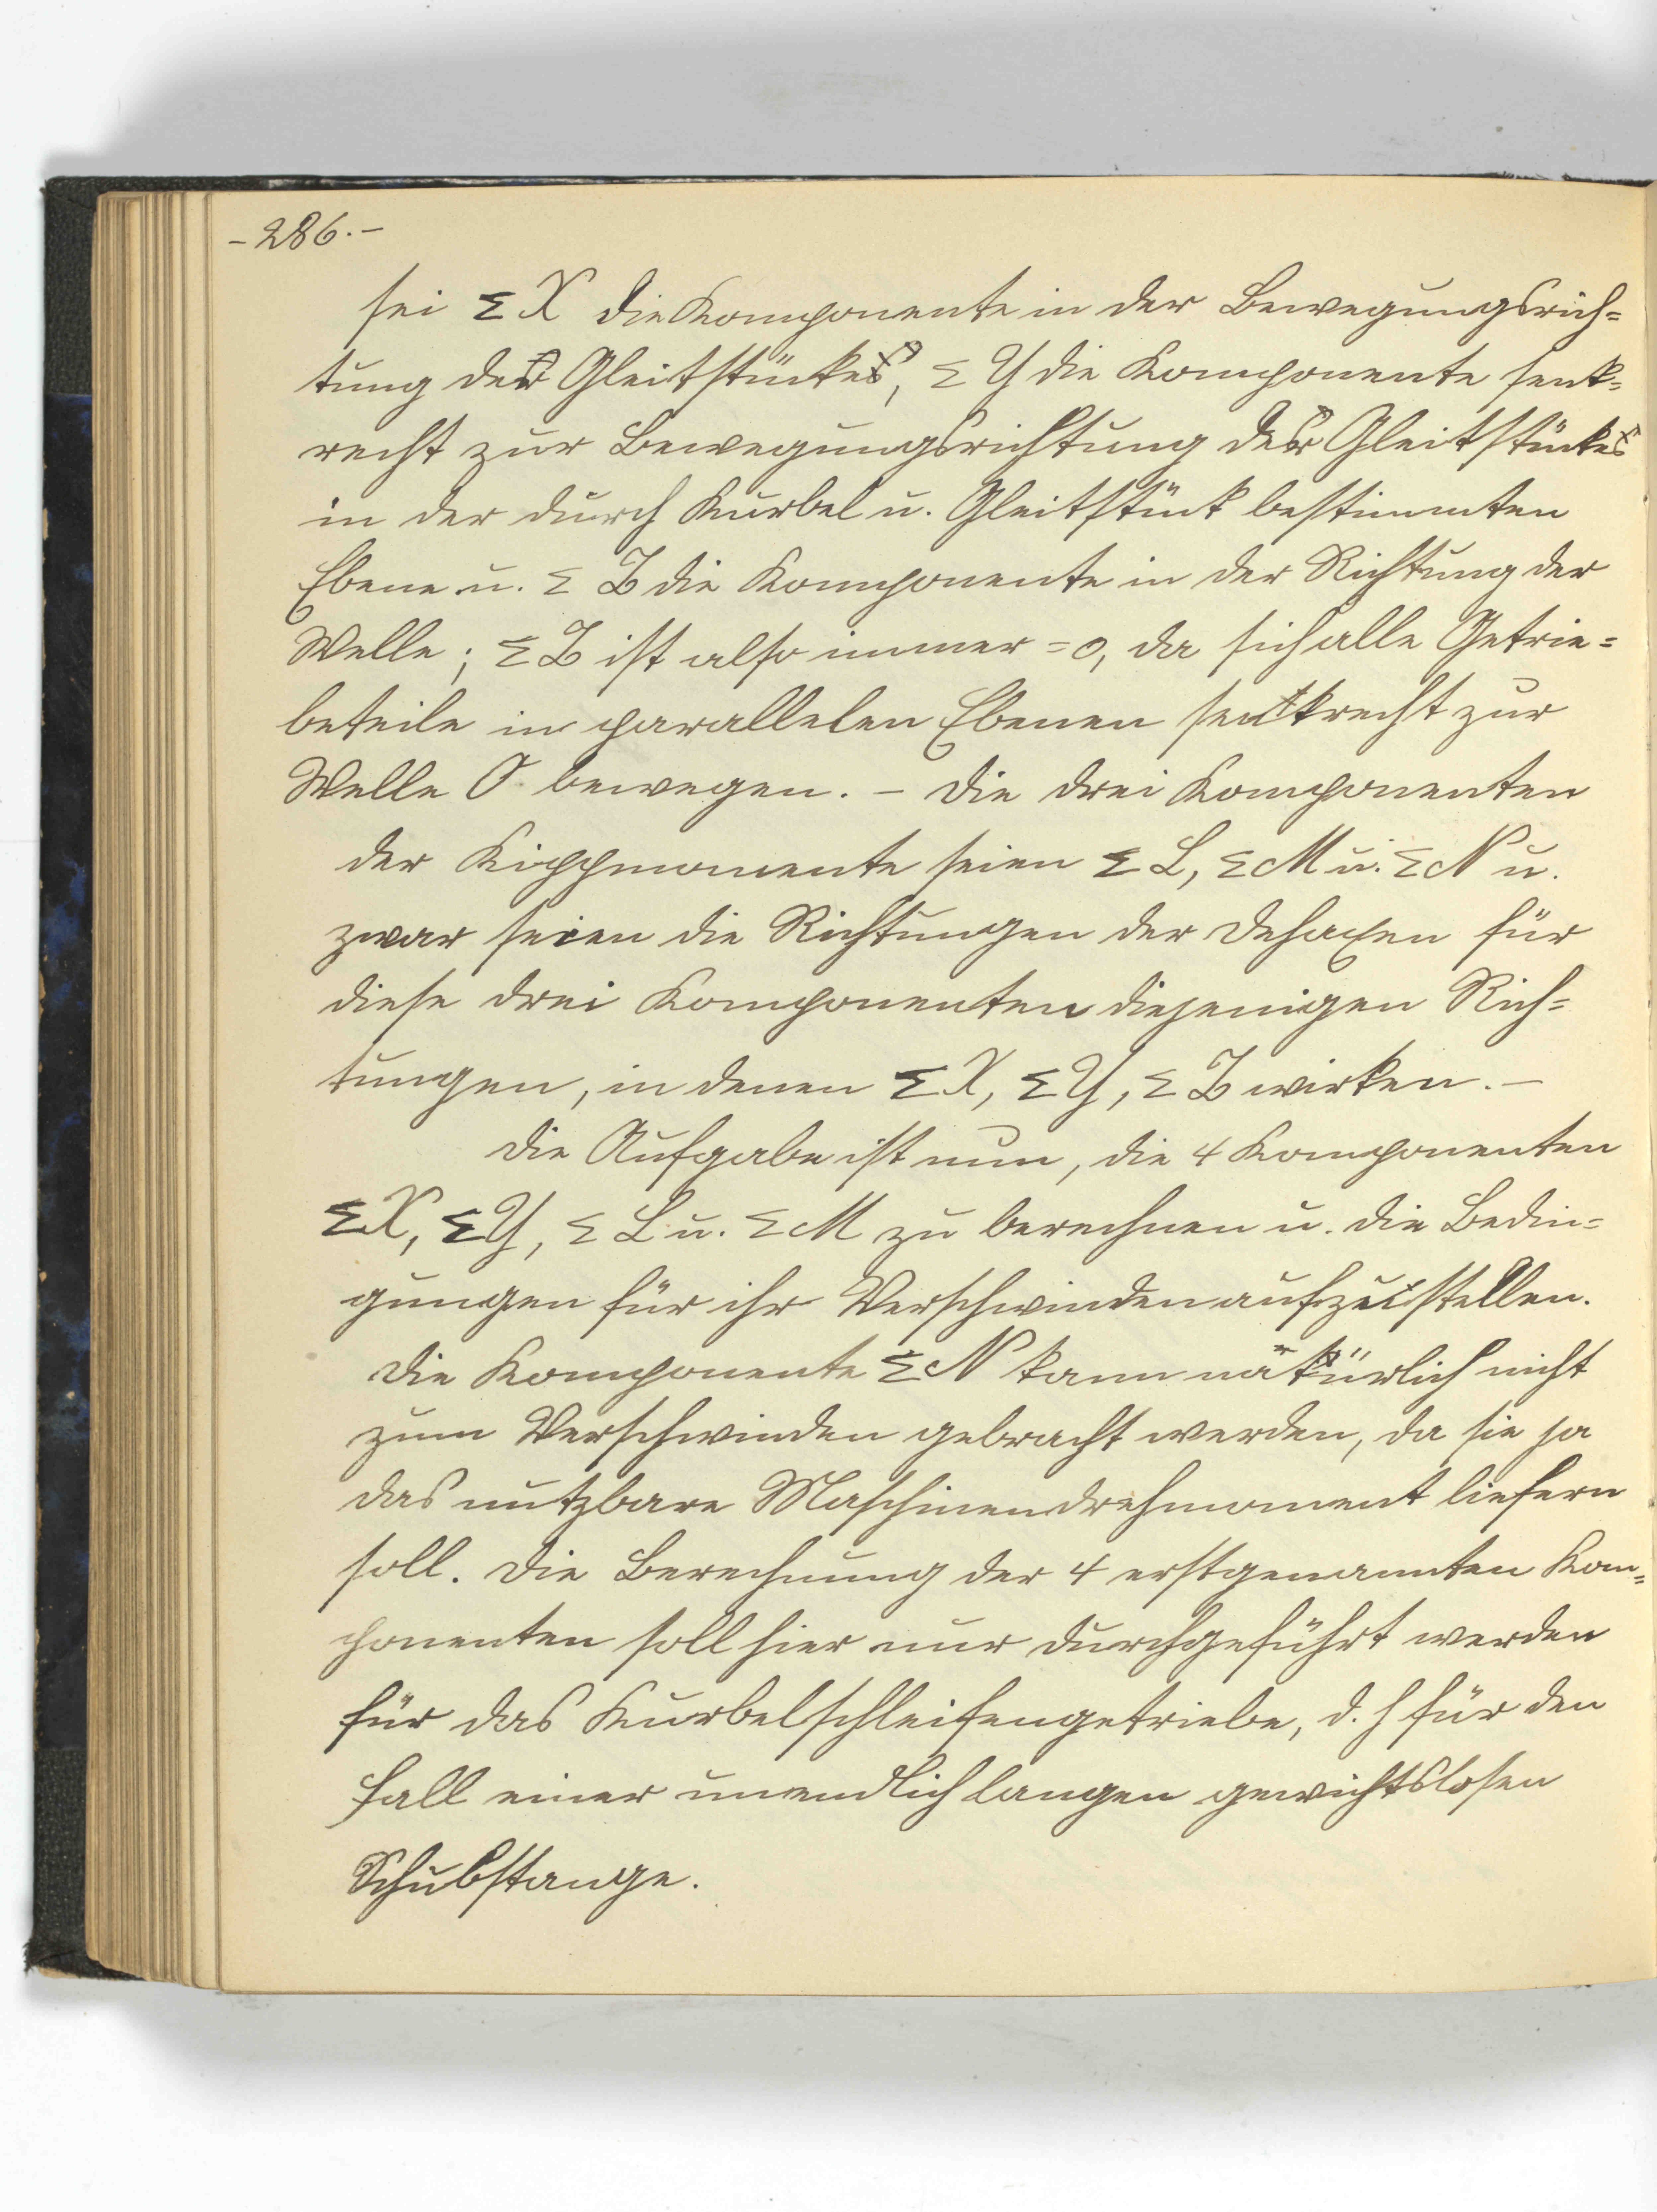 - 286. -
sei Σ X die Komponente in der Bewegungsrich=
tung des Gleitstückes, Σ Y die Komponente senk=
recht zur Bewegungsrichtung des Gleitstückes
in der durch Kurbel u. Gleitstück bestimmten
Ebene u. Σ Z die Komponente in der Richtung der
Welle; Σ Z ist also immer = 0, da sich alle Getrie=
beteile in parallelen Ebenen senkrecht zur
Welle O bewegen. – Die drei Komponenten
der Kippmomente seien Σ L, Σ M u. Σ N u.
zwar seien die Richtungen der Dehaxen für
diese drei Komponenten diejenigen Rich=
tungen, in denen Σ X, Σ Y, Σ Z wirken. –
Die Aufgabe ist nun, die 4 Komponenten
Σ X, Σ Y, Σ L u. Σ M zu berechnen u. die Bedin=
gungen für ihr Verschwinden aufzustellen.
Die Komponente Σ N kann natürlich nicht
zum Verschwinden gebracht werden, da sie ja
das nutzbare Maschinendrehmoment liefern
soll. Die Berechnung der 4 erstgenannten Kom=
ponenten soll hier nur durchgeführt werden
für das Kurbelschleifengetriebe, d. h für den
Fall einer unendlich langen gewichtslosen
Schubstange.